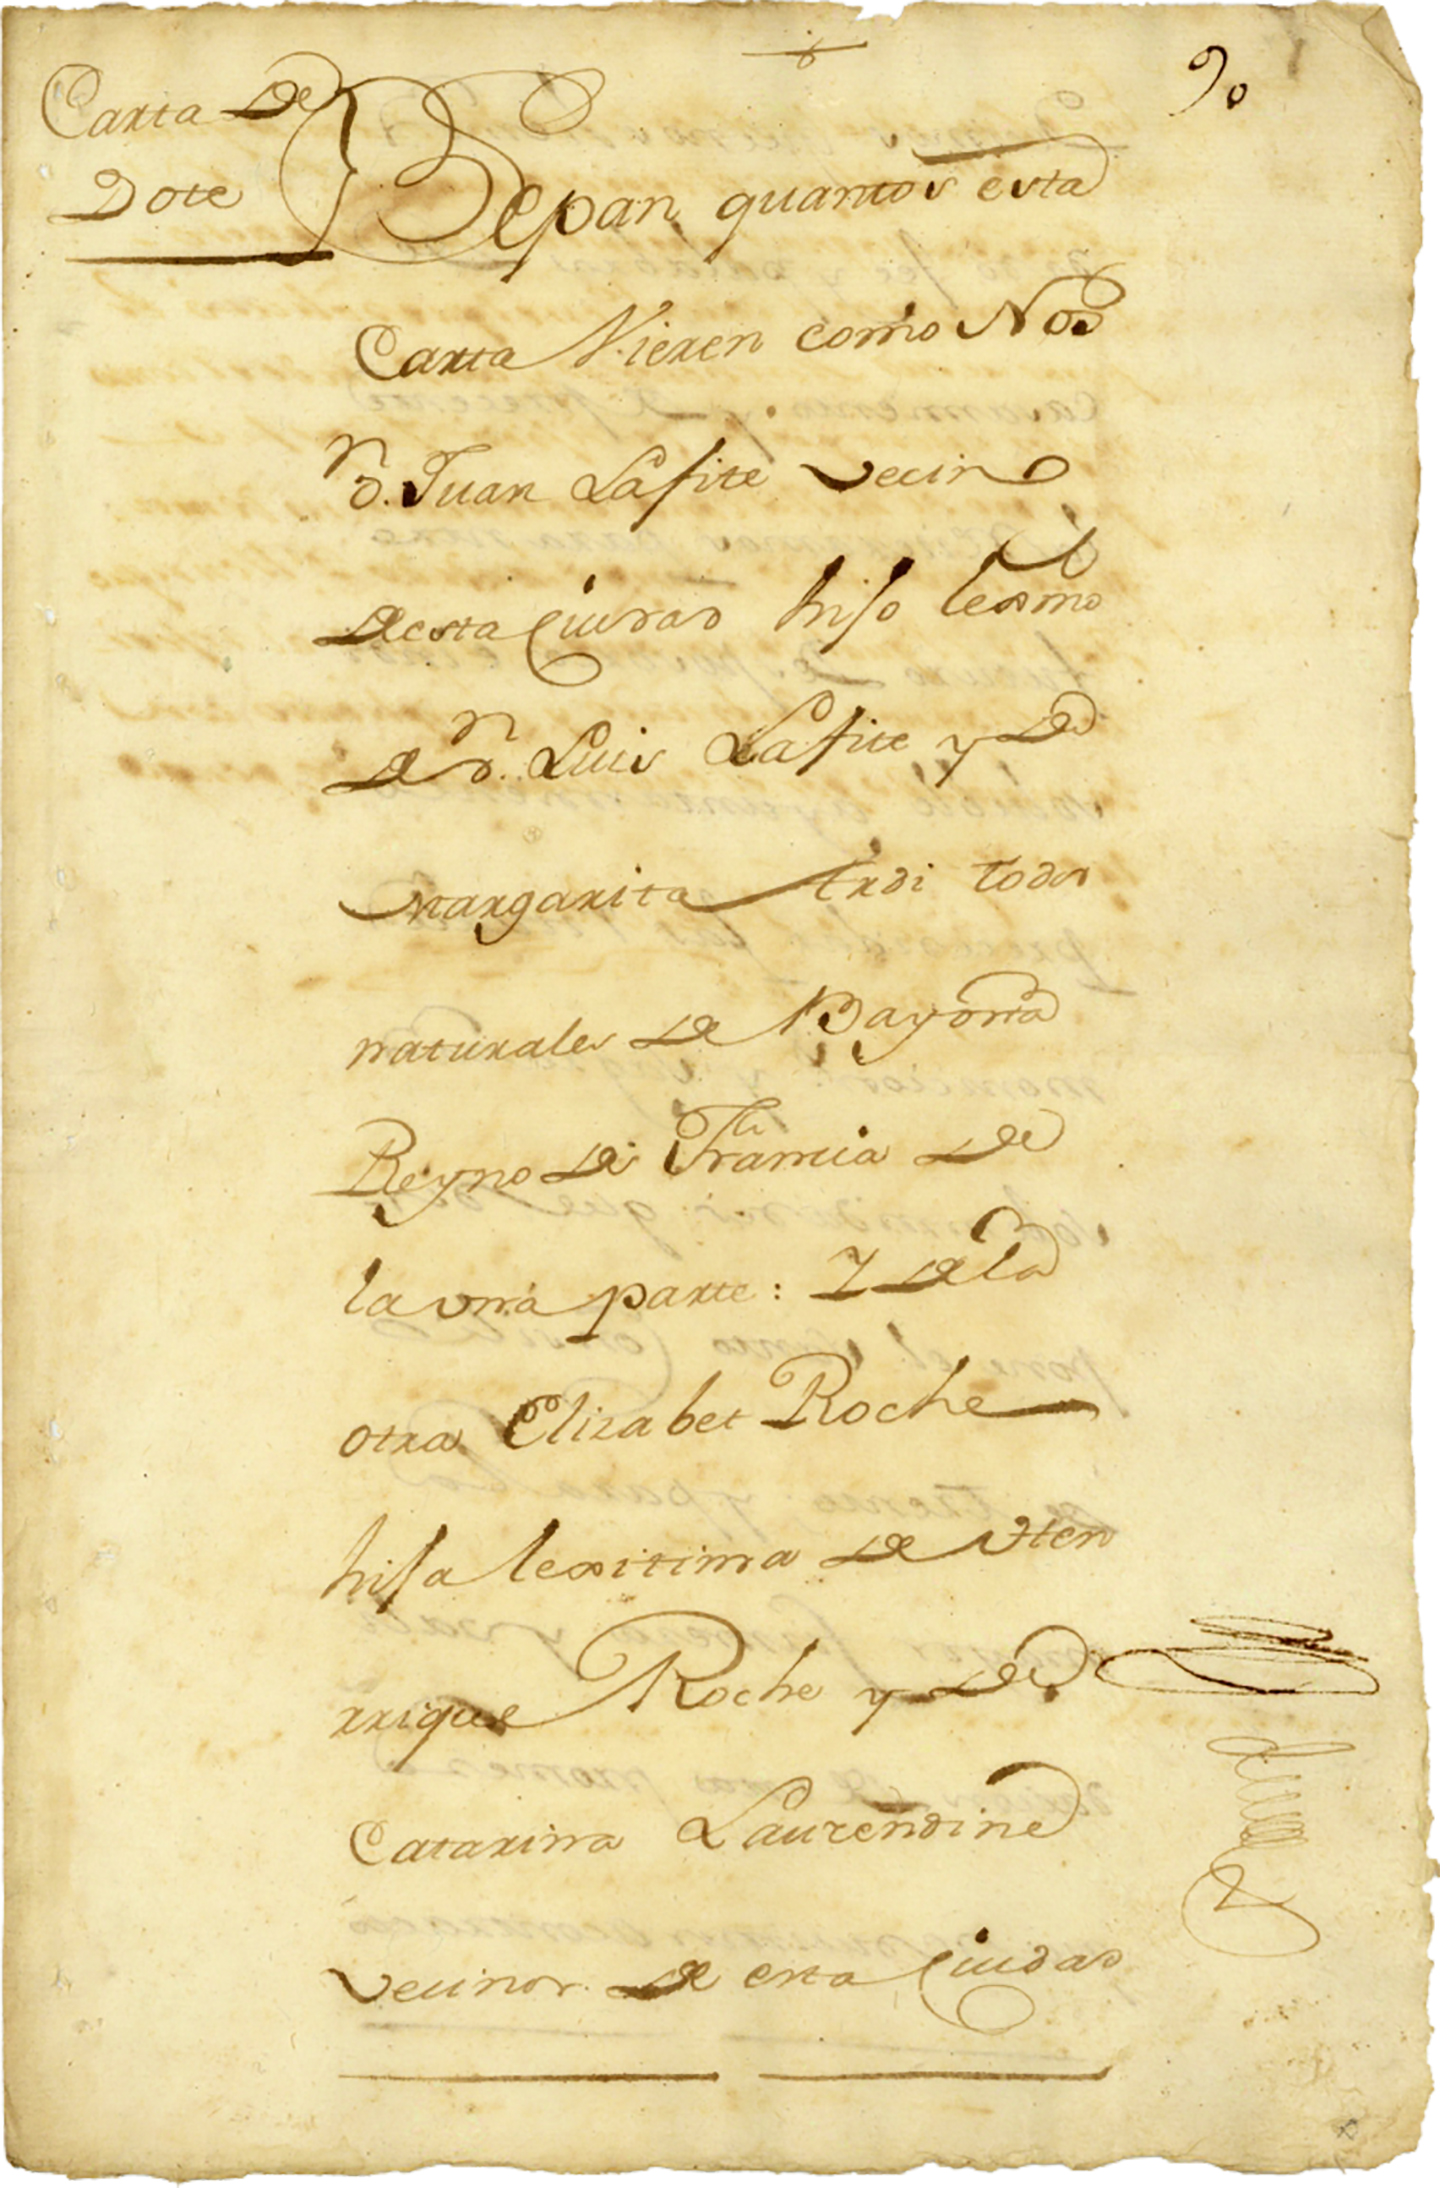 90
Carta De
Dote
Sepan quantos esta
Carta Vieren como Nos
Dn. Juan Lafite vecino
Desta Ciudad hijo lexmo
De Dn. Luis Lafite y De
Margarita Ardi todos
naturales De Bayona
Reyno De Francia De
la vna parte: Y De la
otra Elizabet Roche
hija lexitima De Hen
rrique Roche y De
Catarina Laurendine
vecinos De esta Ciudad